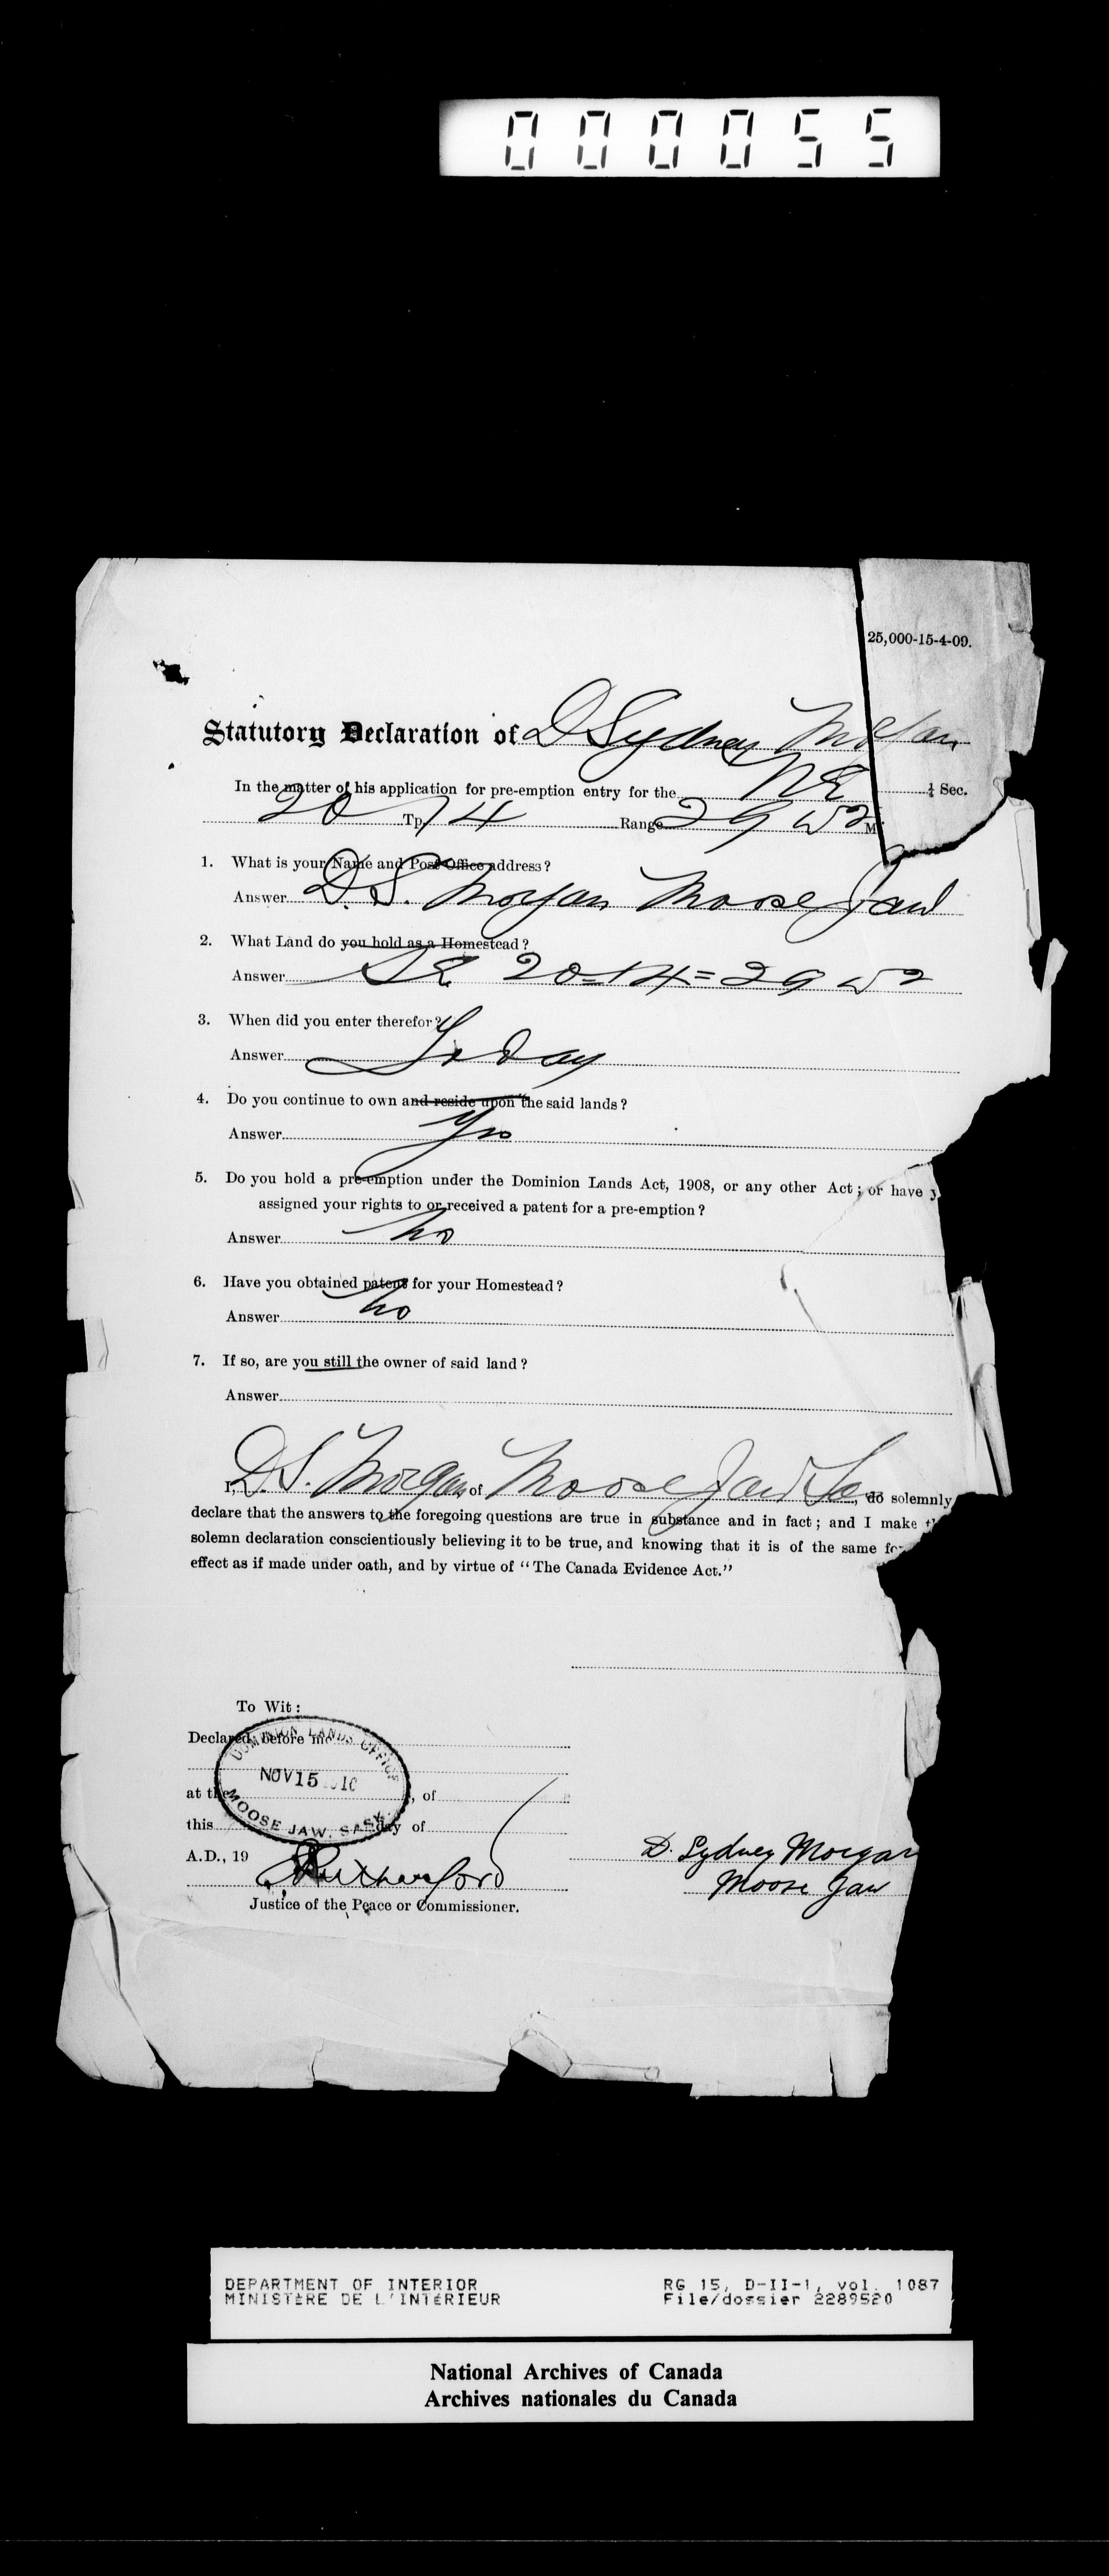 000055
25,000-15-4-09.
Statutory Declaration of D Sydney Morgan
In the matter of his application for pre-emption entry for the NE ¼ Sec.
20 Tp. 14 Range 29 W2 M
1. What is your Name and Post Office address?
Answer D. S. Morgan Moose Jaw
2. What Land do you hold as a Homestead?
Answer SE 20=14=29 W2
3. When did you enter therefor?
Answer Today
4. Do you continue to own and reside upon the said lands?
Answer Yes
5. Do you hold a pre-emption under the Dominion Lands Act, 1908, or any other Act; or have
assigned your rights to or received a patent for a pre-emption?
Answer No
6. Have you obtained patent for your Homestead?
Answer No
7. If so, are you still the owner of said land?
Answer
I, D. S. Morgan of Moose Jaw, do solemnly
declare that the answers to the foregoing questions are true in substance and in fact; and I make
solemn declaration conscientiously believing it to be true, and knowing that it is of the same
effect as if made under oath, and by virtue of "The Canada Evidence Act."
To Wit:
Declared before me
DOMINION LANDS OFFICE
NOV 15 1910
MOOSE JAW, SASK.
at the , of
this day of
A.D., 19
Rutherford
Justice of the Peace or Commissioner.
D. Sydney Morgan
Moose Jaw
DEPARTMENT OF INTERIOR
MINISTÈRE DE L'INTÉRIEUR
RG 15, D-II-1, vol. 1087
File/dossier 2289520
National Archives of Canada
Archives nationales du Canada